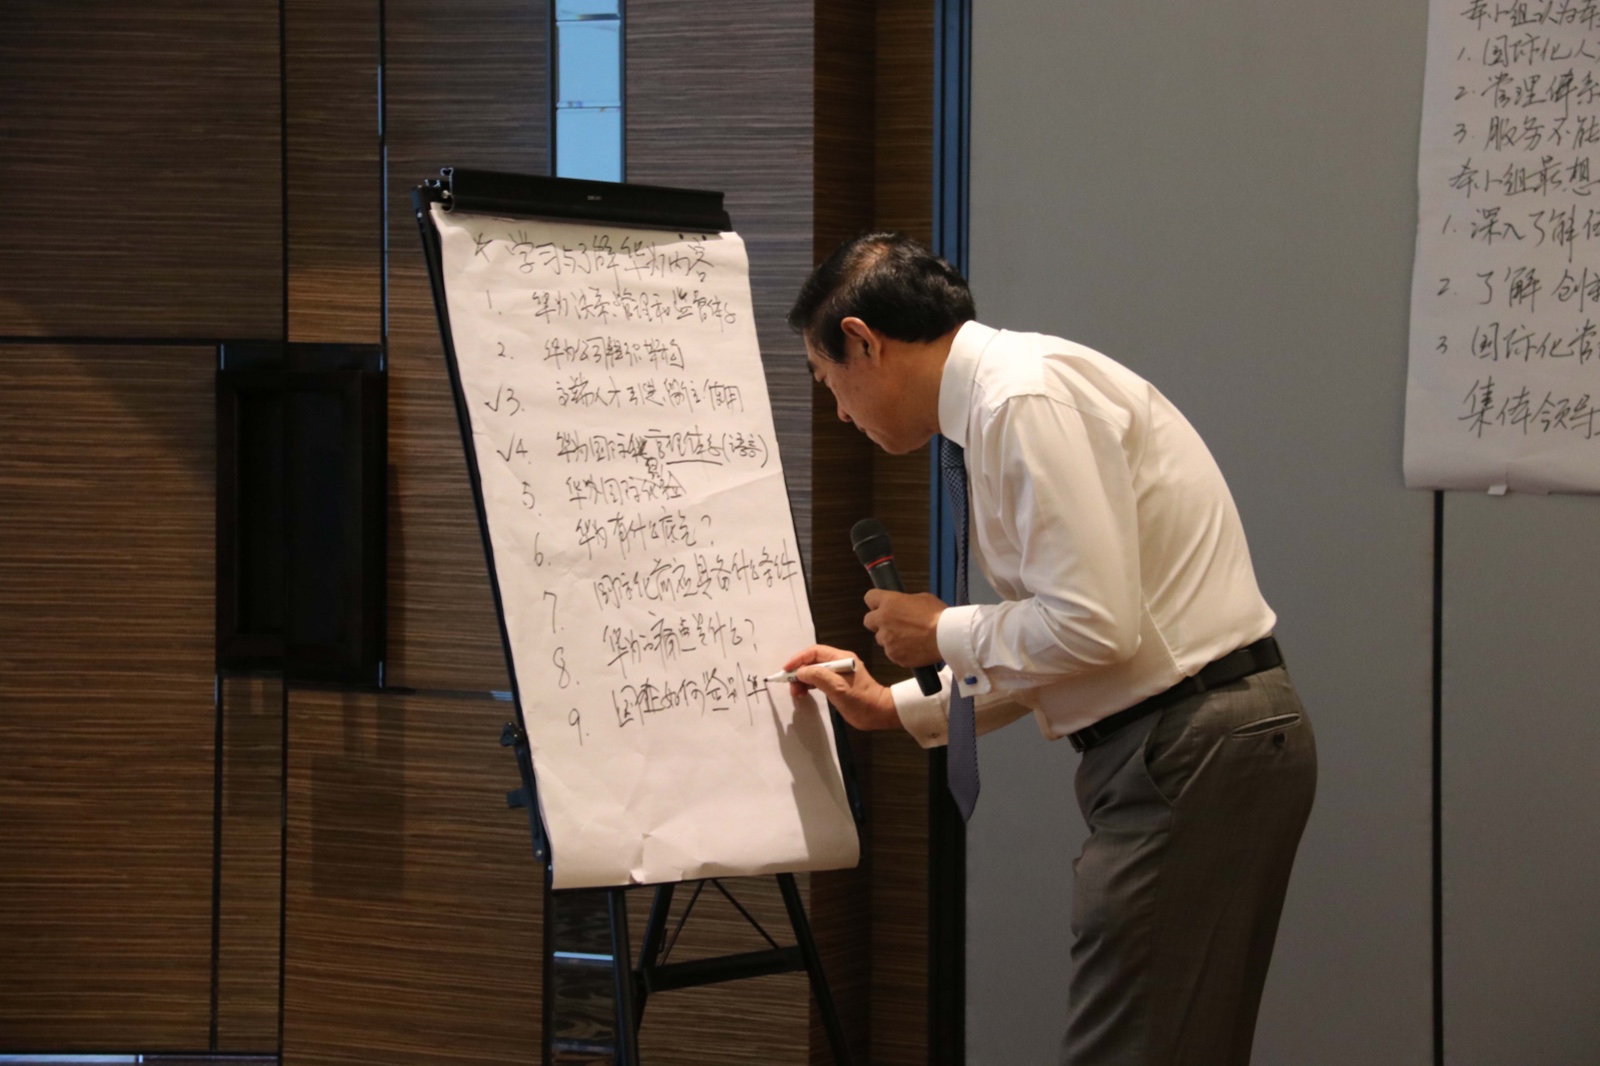 ☆ 学习与了解华为内容
1. 华为决策、管理和监督体系
2. 华为公司组织架构
√3. 高端人才引进、保留、使用
√4. 华为国际化管理体系(语言)
5. 华为国际化经验
6. 华为有什么底气?
7. 国际化前应具备什么条件
8. 华为的痛点是什么?
9. 国企如何鉴别华
本小组认为本
1. 国际化人
2. 管理体系
3. 服务不能
本小组最想
1. 深入了解任
2. 了解 创新
3 国际化管
集体领导